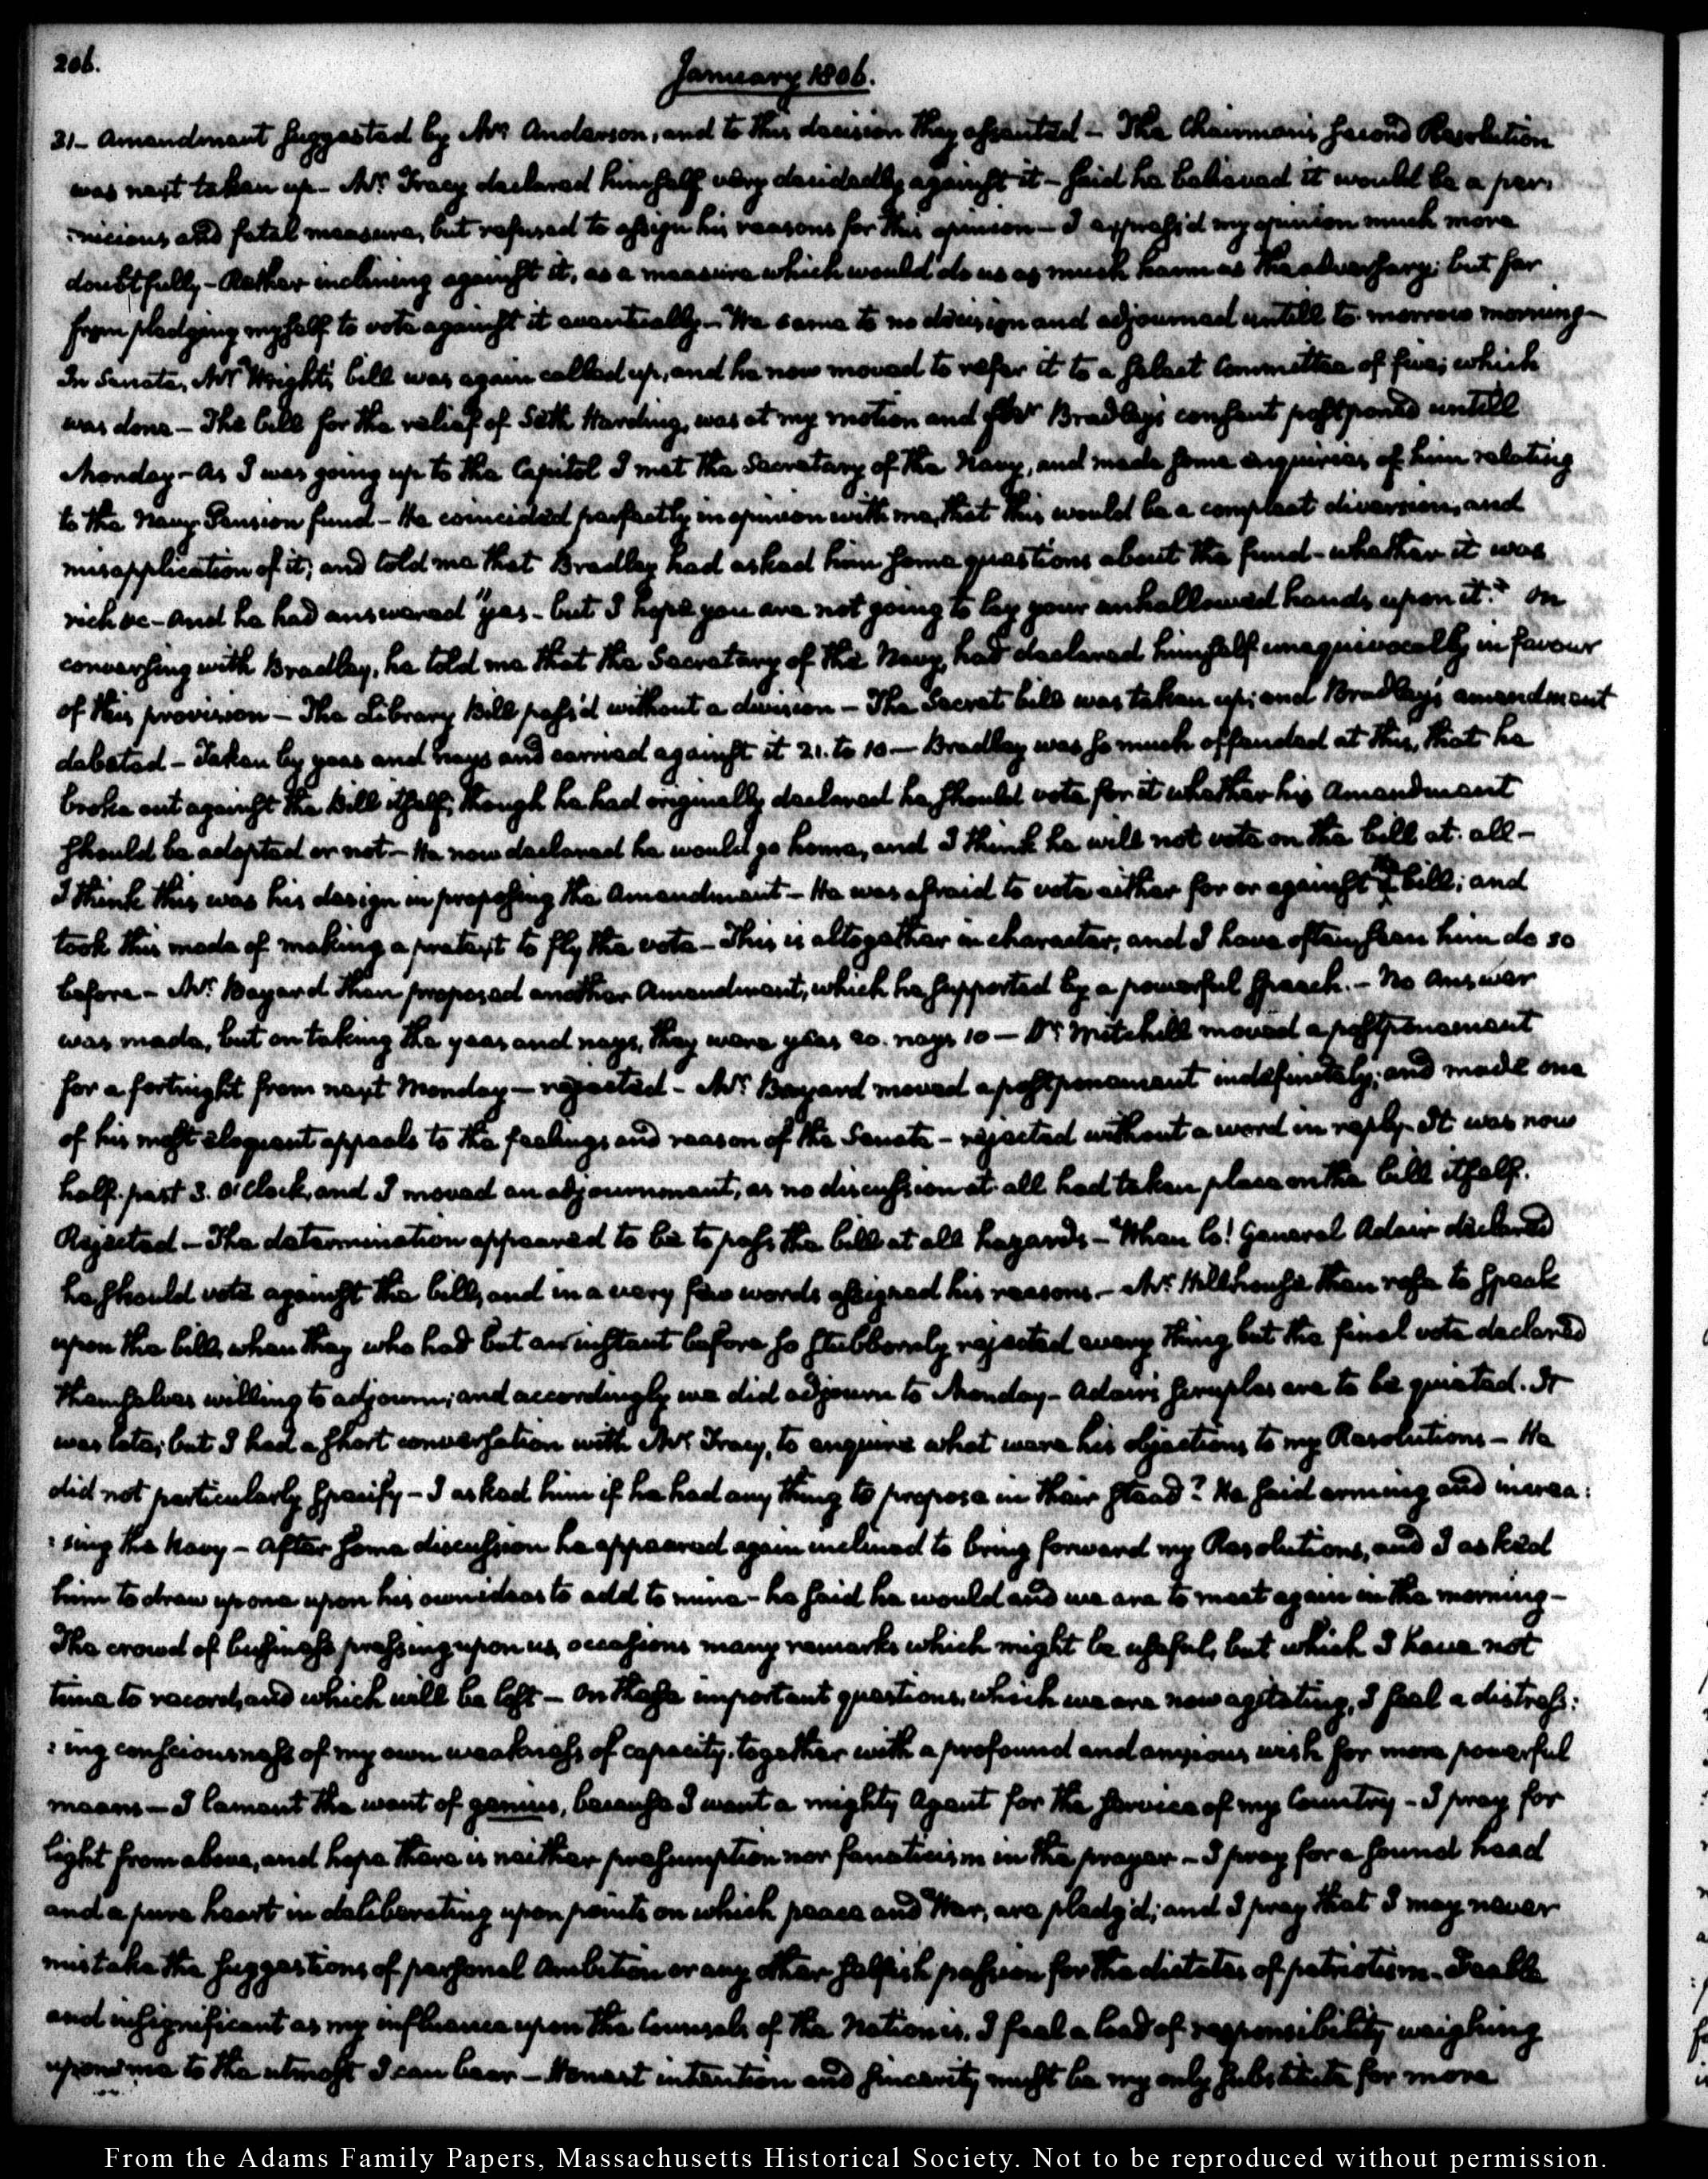 206.
January 1806.
31- Amendment suggested by Mr. Anderson, and to this decision they assented – The Chairman's second Resolution
was next taken up – Mr. Tracy declared himself very decidedly against it – said he believed it would be a per:
:nicious and fatal measure, but refused to assign his reasons for this opinion – I express'd my opinion much more
doubtfully – Rather inclining against it, as a measure which would do us as much harm as the adversary; but far
from pledging myself to vote against it eventually – We came to no decision and adjourned untill to-morrow morning –
In Senate, Mr. Wright's bill was again called up, and he now moved to refer it to a select Committee of five; which
was done – The bill for the relief of Seth Harding, was at my motion and Bradley's consent postponed untill
Monday – As I was going up to the Capitol I met the Secretary of the Navy, and made some enquiries of him relating
to the Navy Pension fund – He coincided perfectly in opinion with me, that this would be a compleat diversion, and
misapplication of it; and told me that Bradley had asked him some questions about the fund – whether it was
rich &c – And he had answered "yes – but I hope you are not going to lay your unhallowed hands upon it." On
conversing with Bradley, he told me that the Secretary of the Navy, had declared himself unequivocally in favour
of this provision – The Library Bill pass'd without a division – The Secret bill was taken up; and Bradley's amendment
debated – Taken by yeas and nays and carried against it 21. to 10 – Bradley was so much offended at this, that he
broke out against the Bill itself; though he had originally declared he should vote for it whether his Amendment
should be adopted or not – He now declared he would go home, and I think he will not vote on the bill at all –
I think this was his design in proposing the Amendment – He was afraid to vote either for or against the bill; and
took this mode of making a pretext to fly the vote – This is altogether in character, and I have often seen him do so
before – Mr. Bayard then proposed another Amendment, which he supported by a powerful speech. – No answer
was made, but on taking the yeas and nays, they were yeas 20. nays 10 – Dr. Mitchill moved a postponement
for a fortnight from next Monday – rejected – Mr. Bayard moved a postponement indefinitely; and made one
of his most eloquent appeals to the feelings and reason of the Senate – rejected without a word in reply – It was now
half-past 3. o'clock, and I moved an adjournment, as no discussion at all had taken place on the bill itself.
Rejected – The determination appeared to be to pass the bill at all hazards – When lo! General Adair declared
he should vote against the bill, and in a very few words assigned his reasons. – Mr. Hillhouse then rose to speak
upon the bill, when they who had but an instant before so stubbornly rejected every thing but the final vote declared
themselves willing to adjourn; and accordingly we did adjourn to Monday – Adair's scruples are to be quieted. It
was late; but I had a short conversation with Mr. Tracy, to enquire what were his objections to my Resolutions – He
did not particularly specify – I asked him if he had any thing to propose in their stead? He said arming and increa:
:sing the Navy – After some discussion he appeared again inclined to bring forward my Resolutions, and I asked
him to draw up one upon his own ideas to add to mine – he said he would and we are to meet again in the morning –
The crowd of business pressing upon us, occasions many remarks which might be useful, but which I have not
time to record, and which will be lost – On these important questions, which we are now agitating, I feel a distress:
:ing consciousness of my own weakness of capacity, together with a profound and anxious wish for more powerful
means – I lament the want of genius, because I want a mighty Agent for the service of my Country – I pray for
light from above, and hope there is neither presumption nor fanaticism in the prayer – I pray for a sound head
and a pure heart in deliberating upon points on which peace and War, are pledg'd; and I pray that I may never
mistake the suggestions of personal Ambition or any other selfish passion for the dictates of patriotism. Feeble
and insignificant as my influence upon the Counsels of the Nation is, I feel a load of responsibility weighing
upon me to the utmost I can bear – Honest intention and sincerity must be my only substitute for more
From the Adams Family Papers, Massachusetts Historical Society. Not to be reproduced without permission.